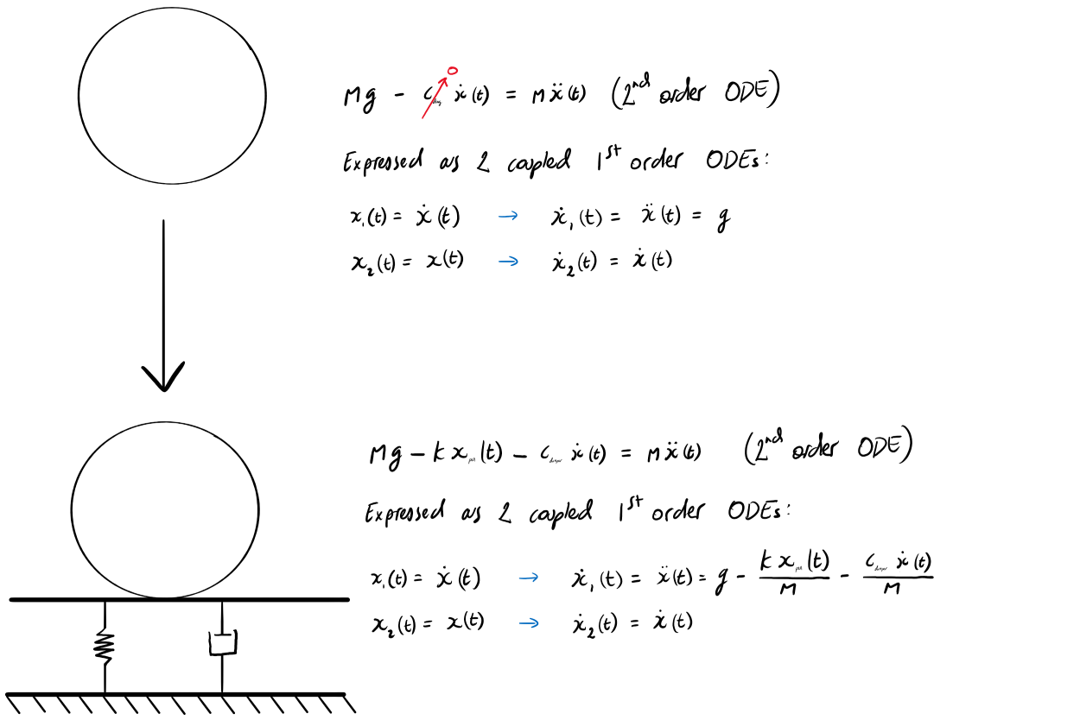 Mg - C ẋ(t) = Mẍ(t) (2nd order ODE)
0
Expressed as 2 coupled 1st order ODEs:
x₁(t) = ẋ(t) → ẋ₁(t) = ẍ(t) = g
x₂(t) = x(t) → ẋ₂(t) = ẋ(t)
Mg - k x (t) - C ẋ(t) = Mẍ(t) (2nd order ODE)
Expressed as 2 coupled 1st order ODEs:
x₁(t) = ẋ(t) → ẋ₁(t) = ẍ(t) = g - k x (t)/M - C ẋ(t)/M
x₂(t) = x(t) → ẋ₂(t) = ẋ(t)